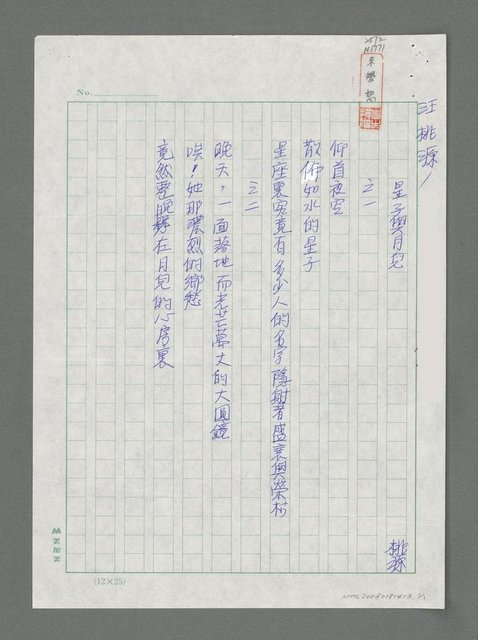 汪桃源
星子與月兒
桃源
之一
仰首夜空
散佈如水的星子
星座裏究竟有多少人的名字隱射着盛衰與榮枯
之二
晚天，一面落地而光芒萬丈的大圓鏡
唉！她那濃烈的鄉愁
竟然整晚在月兒的心房裏
No.
(12×25)